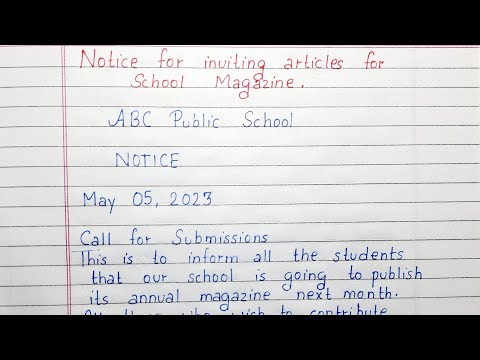 Notice for inviting articles for
School Magazine.
ABC Public School
NOTICE
May 05, 2023
Call for Submissions
This is to inform all the students
that our school is going to publish
its annual magazine next month.
who wish to contribute